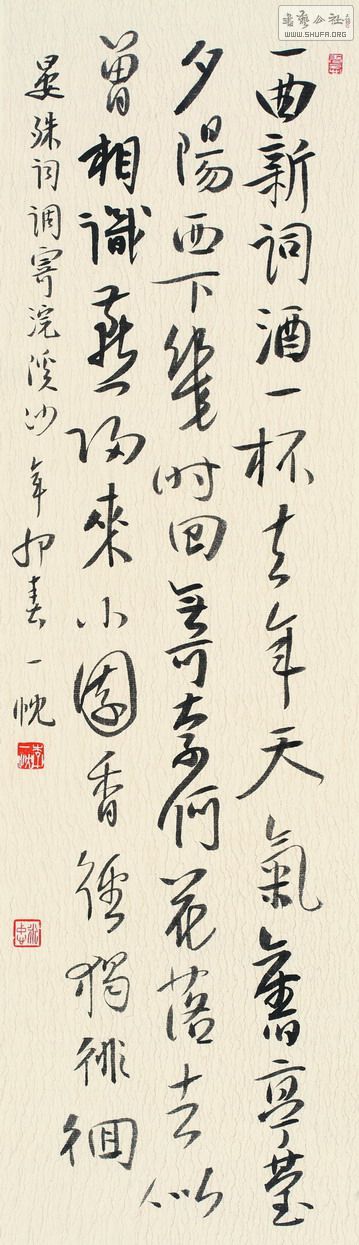 一曲新詞酒一杯去年天氣舊亭臺
夕陽西下幾时回無可奈何花落去似
曾相識燕歸來小園香徑獨徘徊
晏殊词调寄浣溪沙 辛卯春 一忱
書藝公社
WWW.SHUFA.ORG